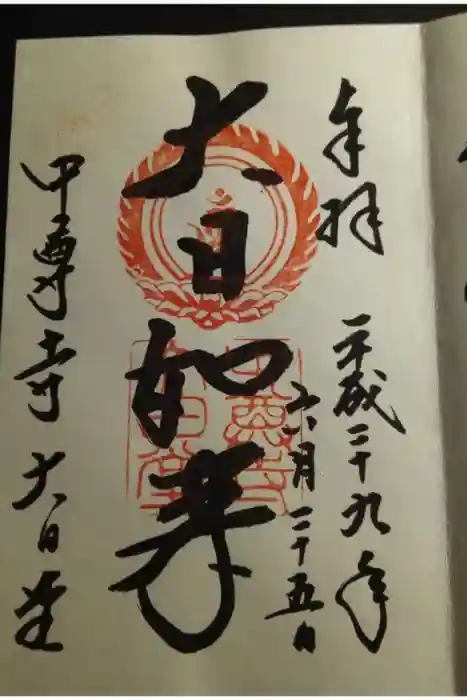 奉拝
平成二十九年
六月二十五日
大日如来
中尊寺 大日堂
中尊寺
大日堂